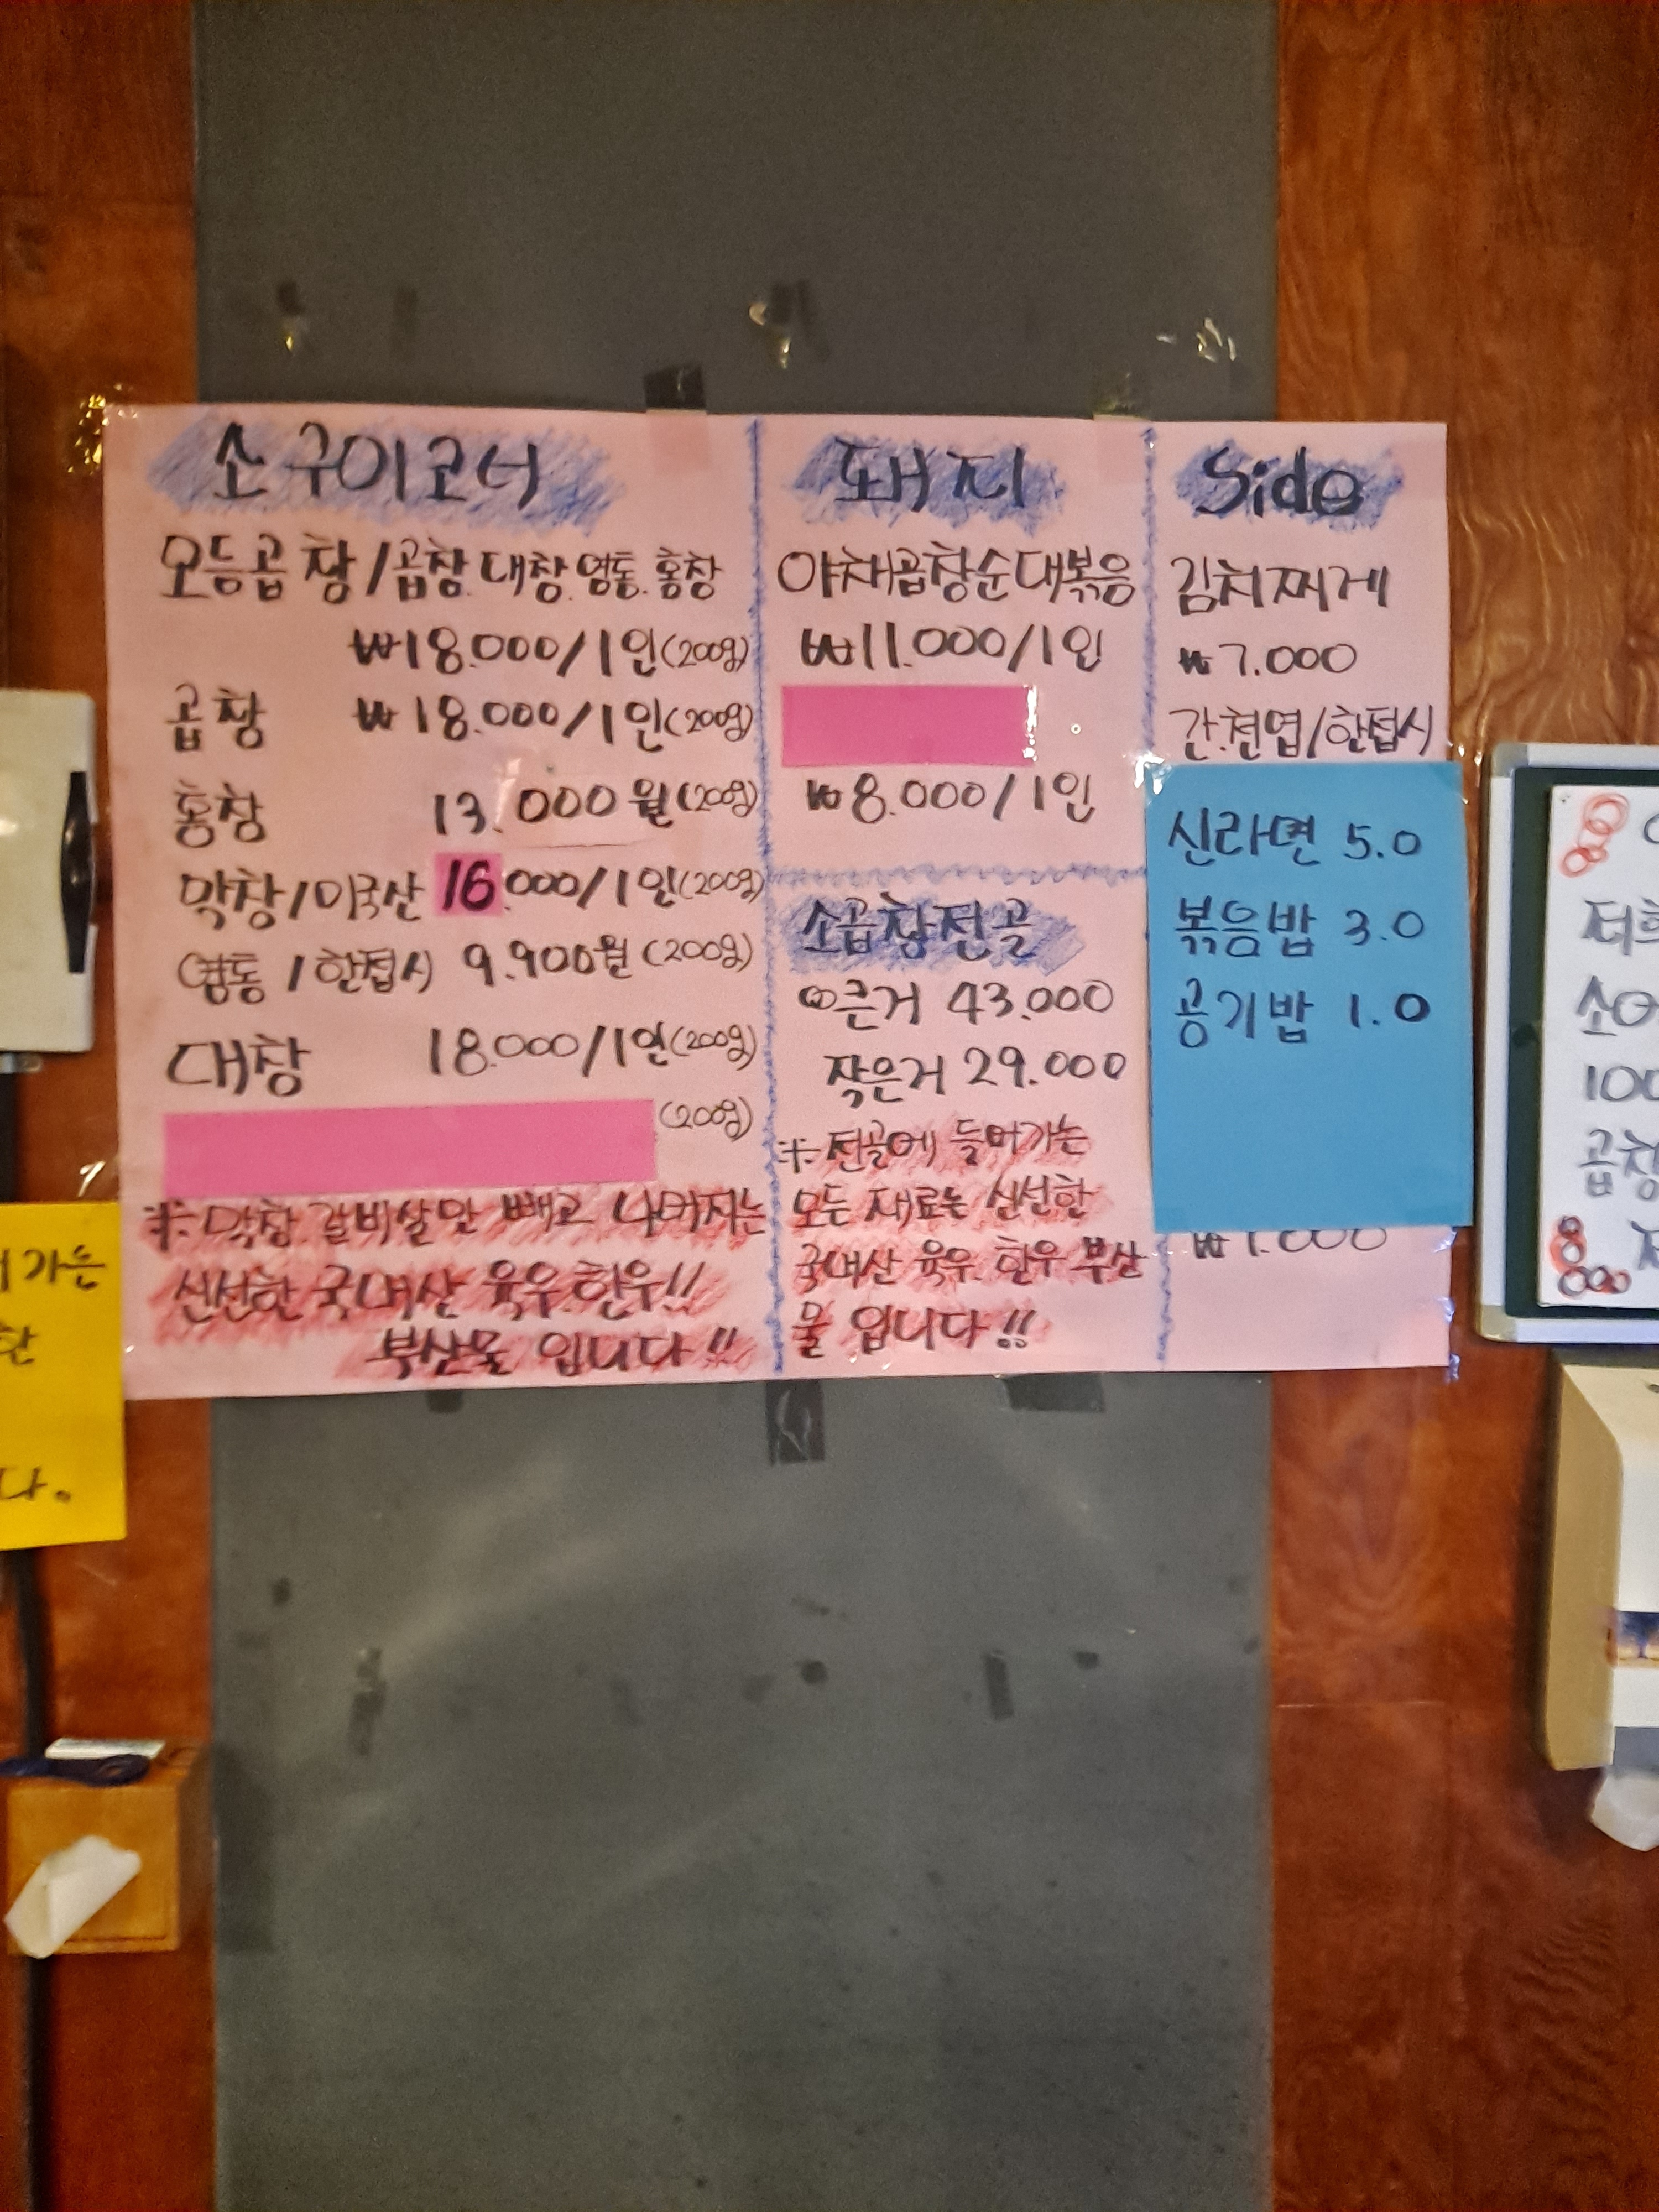 소구이코너
모듬곱창/곱창.대창.염통.홍창
₩18.000/1인(200g)
곱창 ₩18.000/1인(200g)
홍창 13.000원(200g)
막창/미국산 16.000/1인(200g)
염통/한접시 9.900원(200g)
대창 18.000/1인(200g)
(200g)
※막창.갈비살만 빼고 나머지는
신선한 국내산 육우.한우!!
부산물 입니다!!
돼지
야채곱창순대볶음
₩11.000/1인
₩8.000/1인
소곱창전골
큰거 43.000
작은거 29.000
※전골에 들어가는
모든 재료는 신선한
국내산 육우.한우 부산
물 입니다!!
Side
김치찌게
₩7.000
간.천엽/한접시
신라면 5.0
볶음밥 3.0
공기밥 1.0
₩1.000
가는
한
다.
저희
소
100
곱창